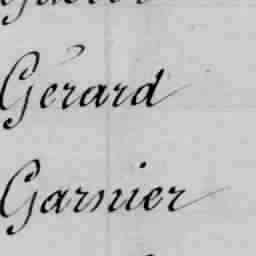 Gérard
Garnier